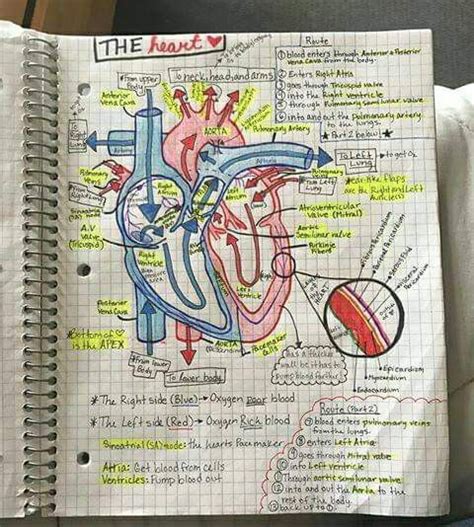 THE heart
To neck, head, and arms
From upper Body
Anterior Vena Cava
AORTA
Pulmonary Artery
Route
① blood enters through Anterior & Posterior
Vena Cava from the body.
② Enters Right Atria
③ goes through Tricuspid valve
④ into the Right Ventricle
⑤ through Pulmonary Semilunar valve
⑥ into and out the Pulmonary artery
to the lungs.
★ Part 2 below ★
To Left Lung
→ to get O2
*ear-like flaps
are the Right and Left
Auricles
Pulmonary Veins
From Left Lung
Pulmonary Veins
From Right Lung
Sinoatrial (SA) node
A.V Valve (Tricuspid)
Right Atrium
Left Atrium
Atrioventricular
Valve (Mitral)
Aortic
Semilunar valve
Purkinje
Fibers
Right Ventricle
Left Ventricle
Posterior Vena Cava
*Bottom of ♡
is the APEX
From lower Body
To lower body
AORTA
Pacemaker Cells
has a thicker
wall b/c it has to
pump blood further
Fibrous Pericardium
Parietal Pericardium
Serous Fluid
Visceral Pericardium
Epicardium
Myocardium
Endocardium
*The Right side (Blue) → Oxygen poor blood
*The Left side (Red) → Oxygen Rich blood
Sinoatrial (SA) node: the hearts Pacemaker
Atria: Get blood from cells
Ventricles: Pump blood out
Route (Part 2)
⑦ blood enters pulmonary veins
from the lungs.
⑧ enters Left Atria
⑨ goes through Mitral valve
⑩ into Left Ventricle
⑪ Through aortic semilunar valve
⑫ into and out the Aorta to the
rest of the body.
⑬ back up to ①.